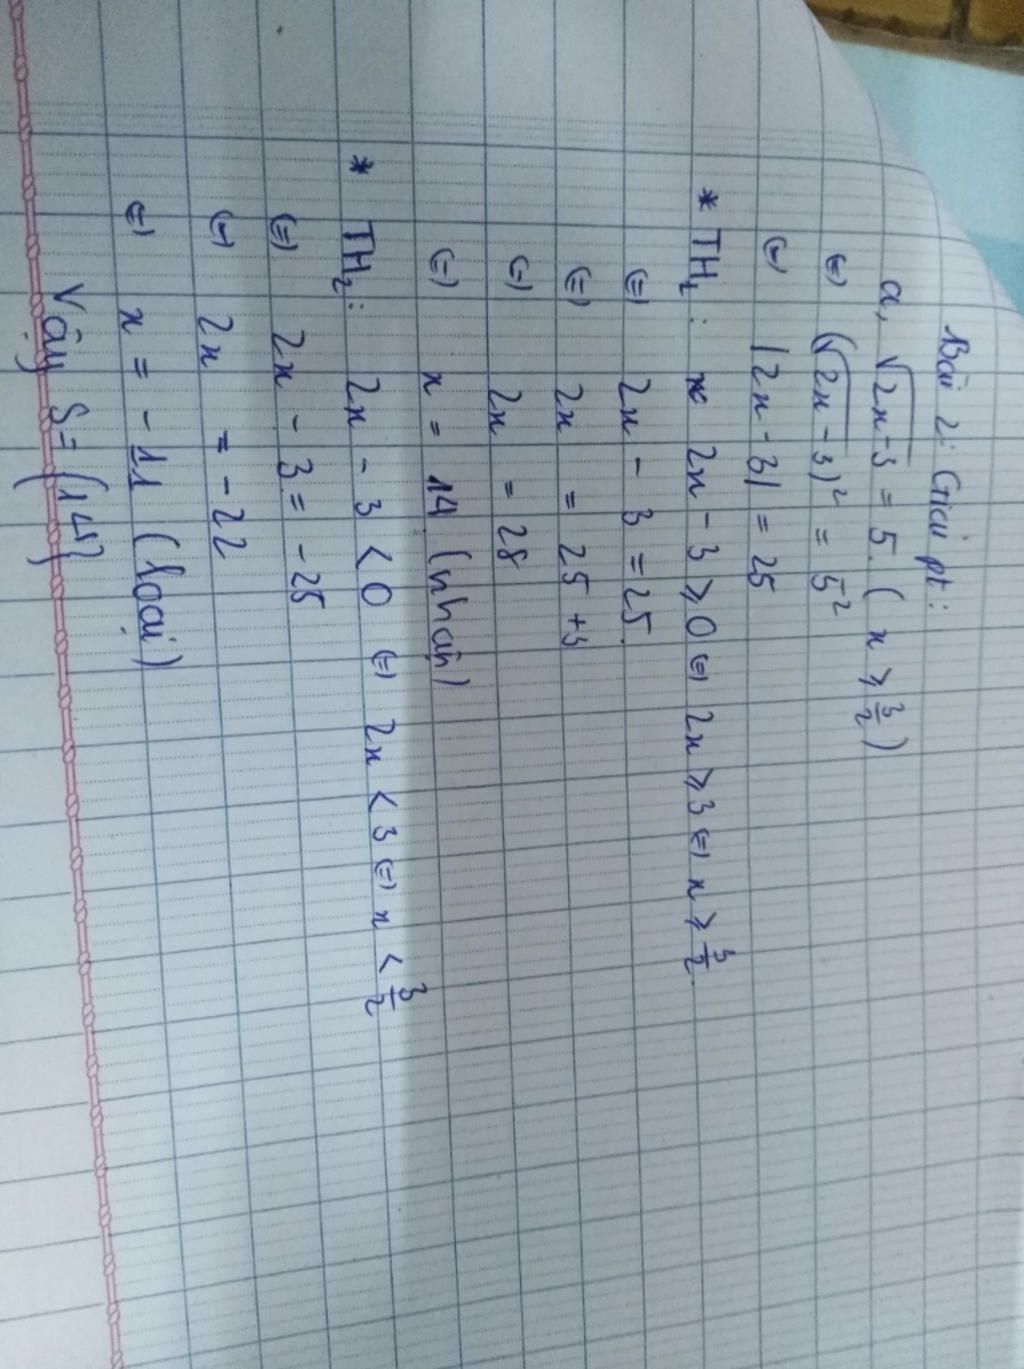 Bài 2: Giải pt:
a, √2x-3 = 5. ( x ⩾ 3/2 )
(=) (√2x-3)² = 5²
(=) |2x-3| = 25
* TH₁: 2x - 3 ⩾ 0 (=) 2x ⩾ 3 (=) x ⩾ 3/2
(=) 2x - 3 = 25.
(=) 2x = 25 +3
(=) 2x = 28
(=) x = 14 (nhận)
* TH₂: 2x - 3 < 0 (=) 2x < 3 (=) x < 3/2
(=) 2x - 3 = - 25
(=) 2x = - 22
(=) x = - 11 (loại)
Vậy S = {14}